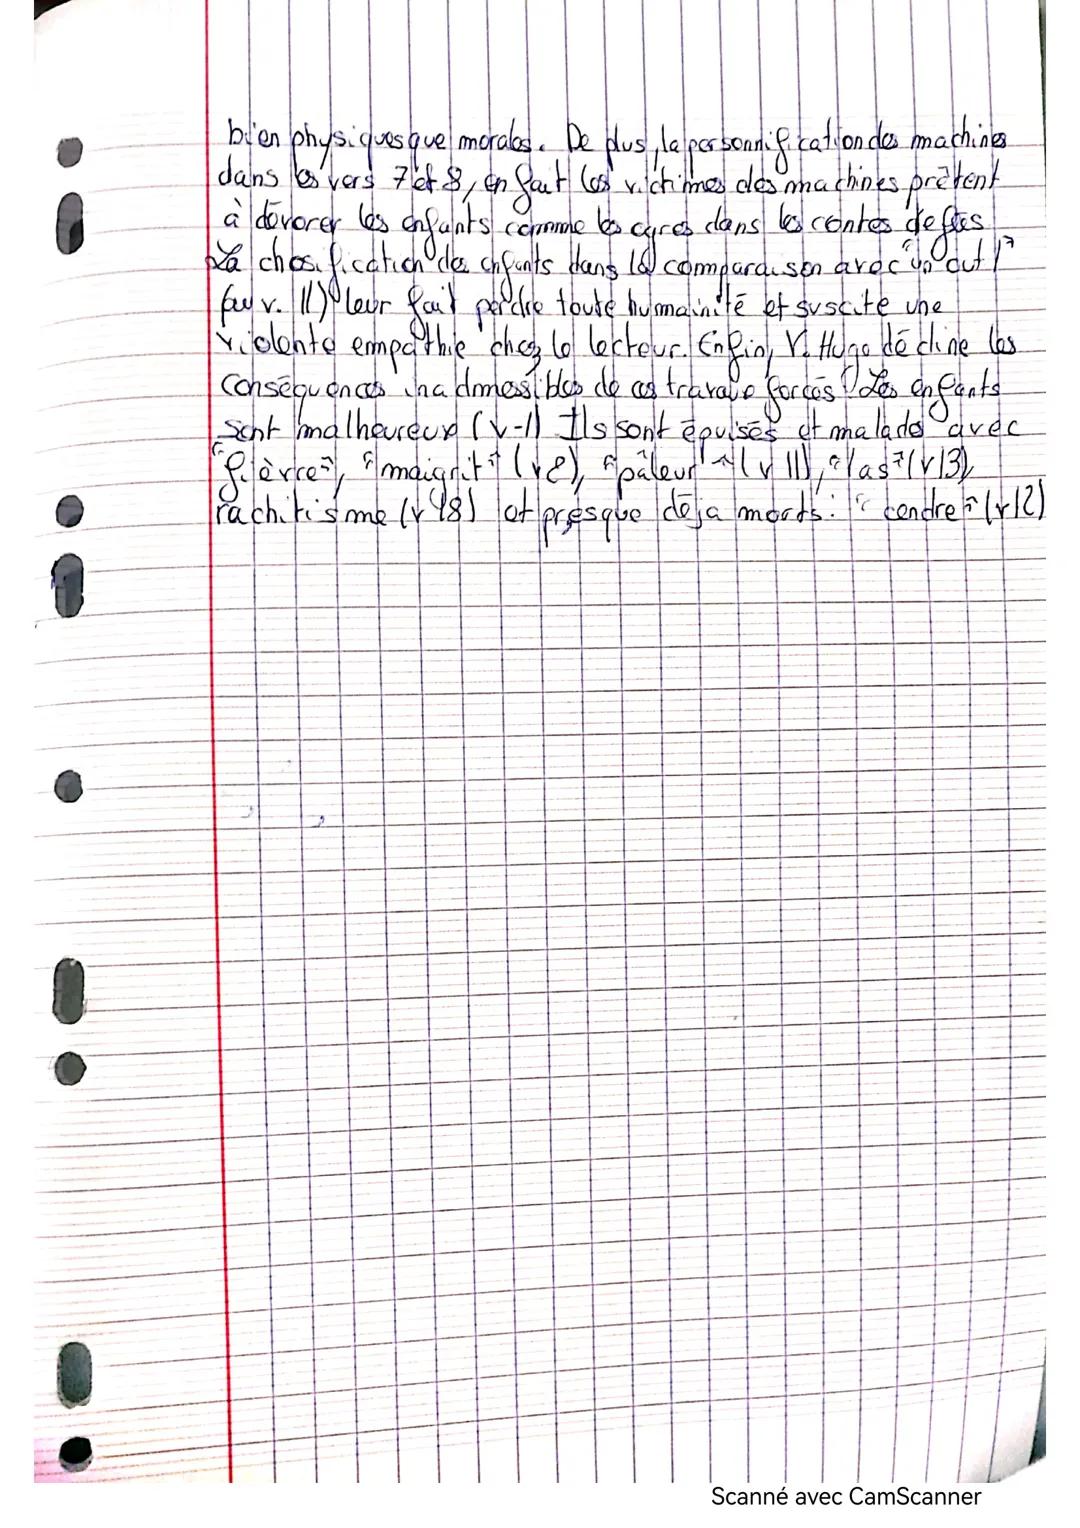 bien physiques que morales. De plus, la personnification des machines
dans les vers 7 et 8, en fait les victimes des machines prêtent
à dévorer les enfants comme les ogres dans les contes de fées
La chosification des enfants dans la comparaison avec "un outil"
(au v. 11) leur fait perdre toute humainité et suscite une
violente empathie chez le lecteur. Enfin, V. Hugo décline les
conséquences inadmessibles de ces travaux forcés. Les enfants
sont malheureux (v-1) Ils sont épuisés et malades avec
"fièvre", "maigrit" (v2), "pâleur" (v 11), "las" (v13),
rachitisme (v 18) et presque déja morts : "cendre" (v12)
Scanné avec CamScanner